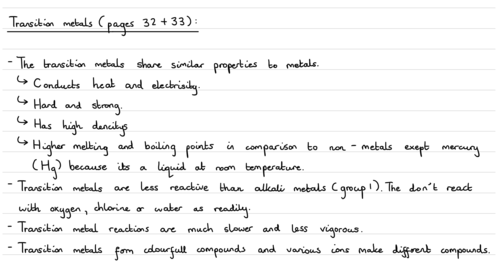 Transition metals (pages 32 + 33):
- The transition metals share similar properties to metals.
↳ Conducts heat and electrisity.
↳ Hard and strong.
↳ Has high dencitys
↳ Higher melting and boiling points in comparison to non - metals exept mercury
(Hg) because its a liquid at room temperature.
- Transition metals are less reactive than alkali metals (group 1). The don't react
with oxygen, chlorine or water as readily.
- Transition metal reactions are much slower and less vigorous.
- Transition metals form colourfull compounds and various ions make different compounds.